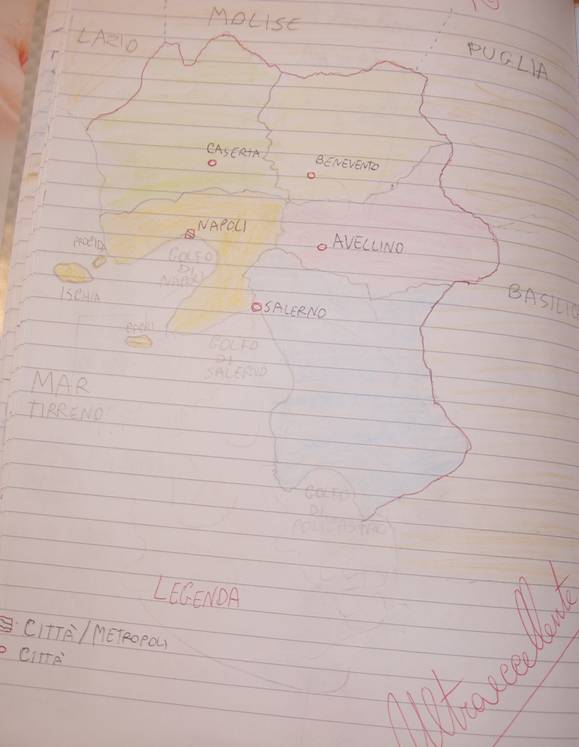 MOLISE
LAZIO
PUGLIA
CASERTA
BENEVENTO
NAPOLI
AVELLINO
PROCIDA
GOLFO
DI
NAPOLI
ISCHIA
BASILIC
SALERNO
CAPRI
GOLFO
DI
SALERNO
MAR
TIRRENO
GOLFO
DI
POLICASTRO
LEGENDA
CITTÀ/METROPOLI
CITTÀ
Ultraeccellente